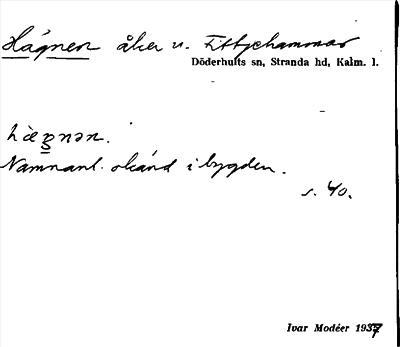 Hägnen åker u. Fittjehammar
Döderhults sn, Stranda hd, Kalm. l.
hægnən.
Namnanl. okänd i bygden.
s. 40.
Ivar Modéer 1937